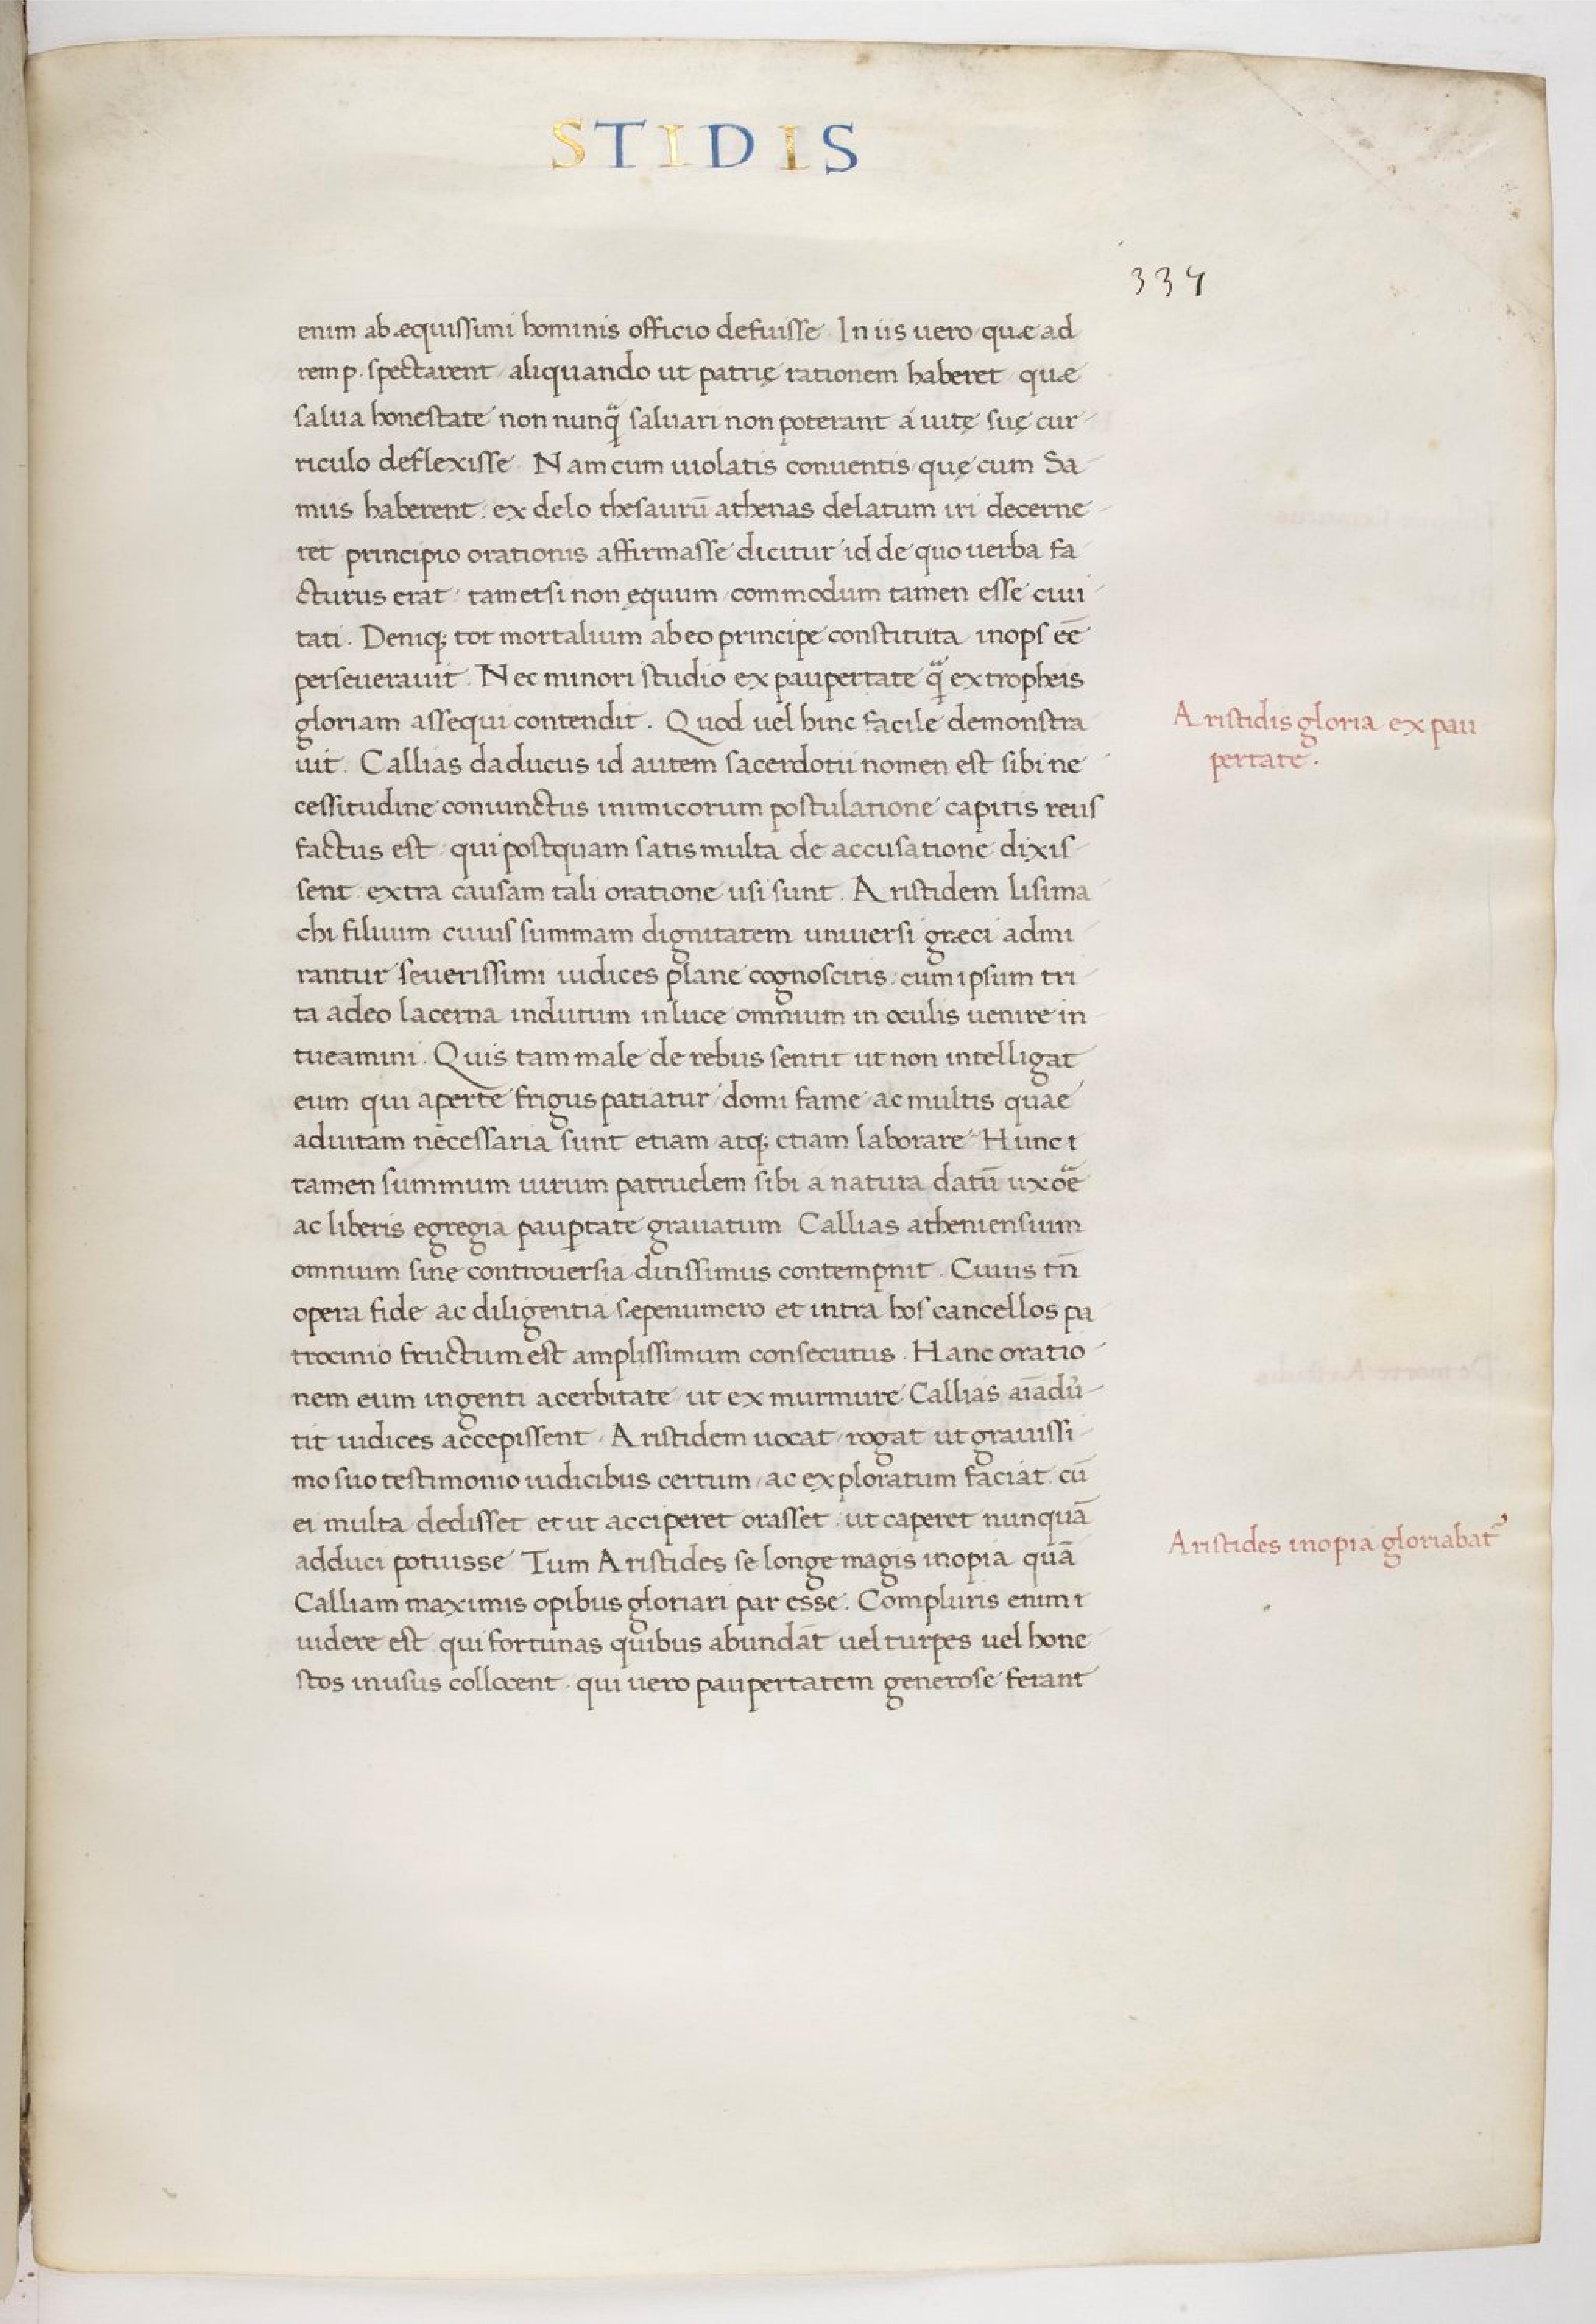 STIDIS
334
enim ab æquissimi hominis officio defuisse. In iis uero quæ ad
rem p. spectarent aliquando ut patrię rationem haberet quæ
salua honestate non nunq̃ saluari non poterant á uitę suę cur-
riculo deflexisse. Nam cum uiolatis conuentis quę cum Sa-
miis haberent: ex delo thesaurū athenas delatum iri decerne-
ret principio orationis affirmasse dicitur id de quo uerba fa
cturus erat: tametsi non ęquum commodum tamen esse ciui-
tati. Deniq; tot mortalium ab eo principe constituta inops eē
perseuerauit. Nec minori studio ex paupertate q̃ ex tropheis
gloriam assequi contendit. Quod uel hinc facile demonstra
uit. Callias daducus id autem sacerdotii nomen est sibi ne-
cessitudine coniunctus inimicorum postulatione capitis reus
factus est: qui postquam satis multa de accusatione dixis-
sent extra causam tali oratione usi sunt. Aristidem lisima-
chi filium cuius summam dignitatem uniuersi græci admi
rantur seuerissimi iudices plane cognoscitis: cum ipsum tri-
ta adeo lacerna indutum in luce omnium in oculis uenire in-
tueamini. Quis tam male de rebus sentit ut non intelligat
eum qui aperte frigus patiatur domi fame ac multis quae
ad uitam necessaria sunt etiam atq; etiam laborare. Hunc t
tamen summum uirum patruelem sibi a natura datū uxoē
ac liberis egregia paup̱tate grauatum Callias atheniensium
omnium sine controuersia ditissimus contempnit. Cuius tn̄
opera fide ac diligentia sæpenumero et intra hos cancellos pa
trocinio fructum est amplissimum consecutus. Hanc oratio-
nem eum ingenti acerbitate ut ex murmure Callias aīadu̇-
tit iudices accepissent, Aristidem uocat, rogat ut grauissi-
mo suo testimonio iudicibus certum, ac exploratum faciat. cū
ei multa dedisset et ut acciperet orasset: ut caperet nunquā
adduci potuisse. Tum Aristides se longe magis inopia quā
Calliam maximis opibus gloriari par esse. Compluris enim i
uidere est qui fortunas quibus abundāt uel turpes uel hone
stos in usus collocent. qui uero paupertatem generose ferant
Aristidis gloria ex pau
pertate.
Aristides inopia gloriabat᷑